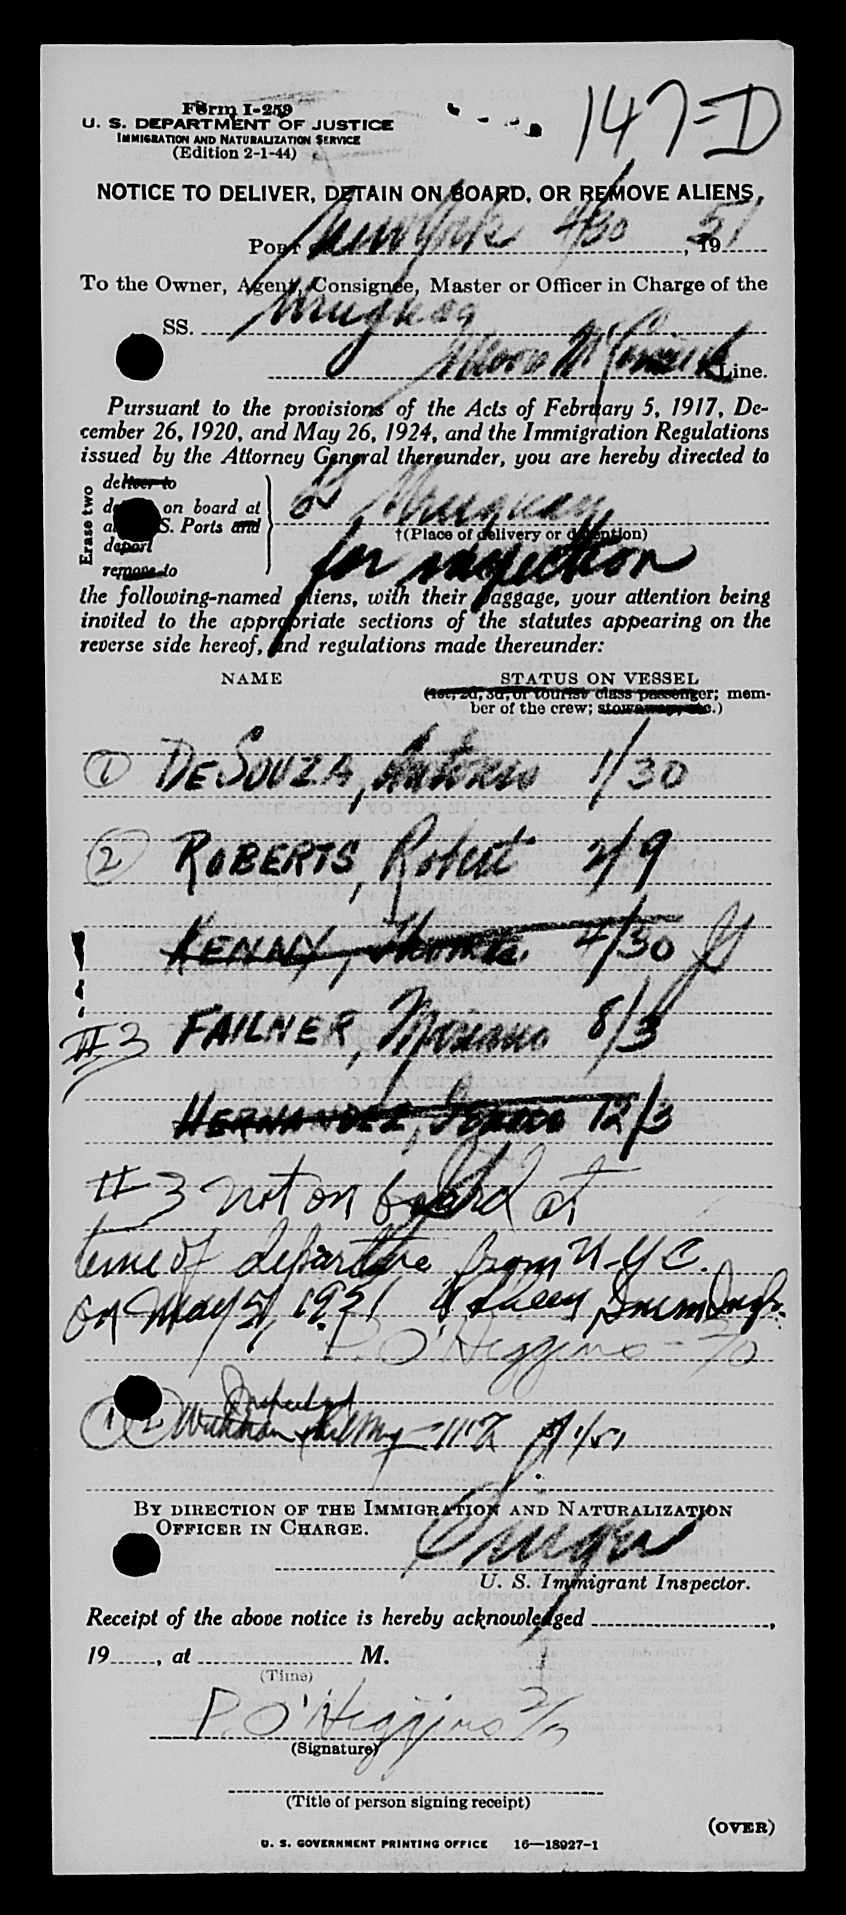 Form I-259
147-D
U. S. DEPARTMENT OF JUSTICE
IMMIGRATION AND NATURALIZATION SERVICE
(Edition 2-1-44)
NOTICE TO DELIVER, DETAIN ON BOARD, OR REMOVE ALIENS
Port of New York 4/30, 1951
To the Owner, Agent, Consignee, Master or Officer in Charge of the
SS. Uruguay
Moore McCormack Line.
Pursuant to the provisions of the Acts of February 5, 1917, De-
cember 26, 1920, and May 26, 1924, and the Immigration Regulations
issued by the Attorney General thereunder, you are hereby directed to
Erase two
deliver to
on board at
S. Ports and
deport
remove to
SS Uruguay
†(Place of delivery or detention)
for inspection
the following-named aliens, with their baggage, your attention being
invited to the appropriate sections of the statutes appearing on the
reverse side hereof, and regulations made thereunder:
NAME STATUS ON VESSEL
(1st, 2d, 3d, or tourist class passenger; mem-
ber of the crew; stowaway, etc.)
1 DESOUZA, Antonio 1/30
2 ROBERTS, Robert 2/9
KENNY, Thomas 4/30
#3 FAILNER, Mariano 8/3
HERNANDEZ, 12/3
#3 not on board at
time of departure from N.Y.C.
on May 5, 1951
P. O'Higgins - 2/0
1 2 Inspected
BY DIRECTION OF THE IMMIGRATION AND NATURALIZATION
OFFICER IN CHARGE.
U. S. Immigrant Inspector.
Receipt of the above notice is hereby acknowledged ,
19 , at M.
(Time)
P. O'Higgins 2/0
(Signature)
(Title of person signing receipt)
(OVER)
U. S. GOVERNMENT PRINTING OFFICE 16—18927-1